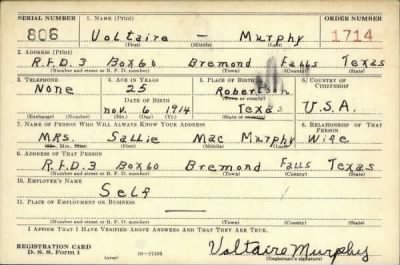 SERIAL NUMBER 1. NAME (Print) ORDER NUMBER
806 Voltaire — Murphy 1714
(First) (Middle) (Last)
2. ADDRESS (Print)
R.F.D. 3 Box 60 Bremond Falls Texas
(Number and street or R. F. D. number) (Town) (County) (State)
3. TELEPHONE 4. AGE IN YEARS 5. PLACE OF BIRTH 6. COUNTRY OF CITIZENSHIP
None 25 Robertson
DATE OF BIRTH (Town or county)
Nov. 1914 Texas U.S.A.
(Exchange) (Number) (Mo.) (Day) (Yr.) (State or country)
7. NAME OF PERSON WHO WILL ALWAYS KNOW YOUR ADDRESS 8. RELATIONSHIP OF THAT PERSON
Mrs. Sallie Mae Murphy Wife
(Mr., Mrs., Miss) (First) (Middle) (Last)
9. ADDRESS OF THAT PERSON
R.F.D. 3 Box 60 Bremond Falls Texas
(Number and street or R. F. D. number) (Town) (County) (State)
10. EMPLOYER'S NAME
Self
11. PLACE OF EMPLOYMENT OR BUSINESS
—
(Number and street or R. F. D. number) (Town) (County) (State)
I AFFIRM THAT I HAVE VERIFIED ABOVE ANSWERS AND THAT THEY ARE TRUE.
REGISTRATION CARD
D. S. S. Form 1 16—17105 Voltaire Murphy
(Registrant's signature)